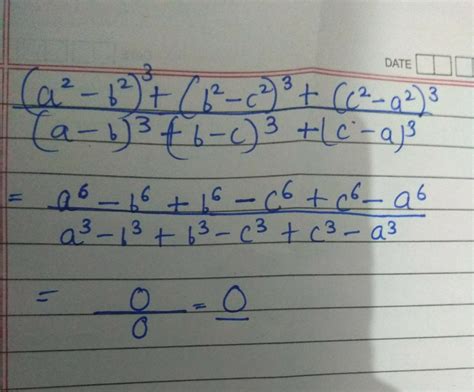 DATE
(a² - b²)³ + (b² - c²)³ + (c² - a²)³
(a - b)³ + (b - c)³ + (c - a)³
= a⁶ - b⁶ + b⁶ - c⁶ + c⁶ - a⁶
a³ - b³ + b³ - c³ + c³ - a³
= 0
0
= 0